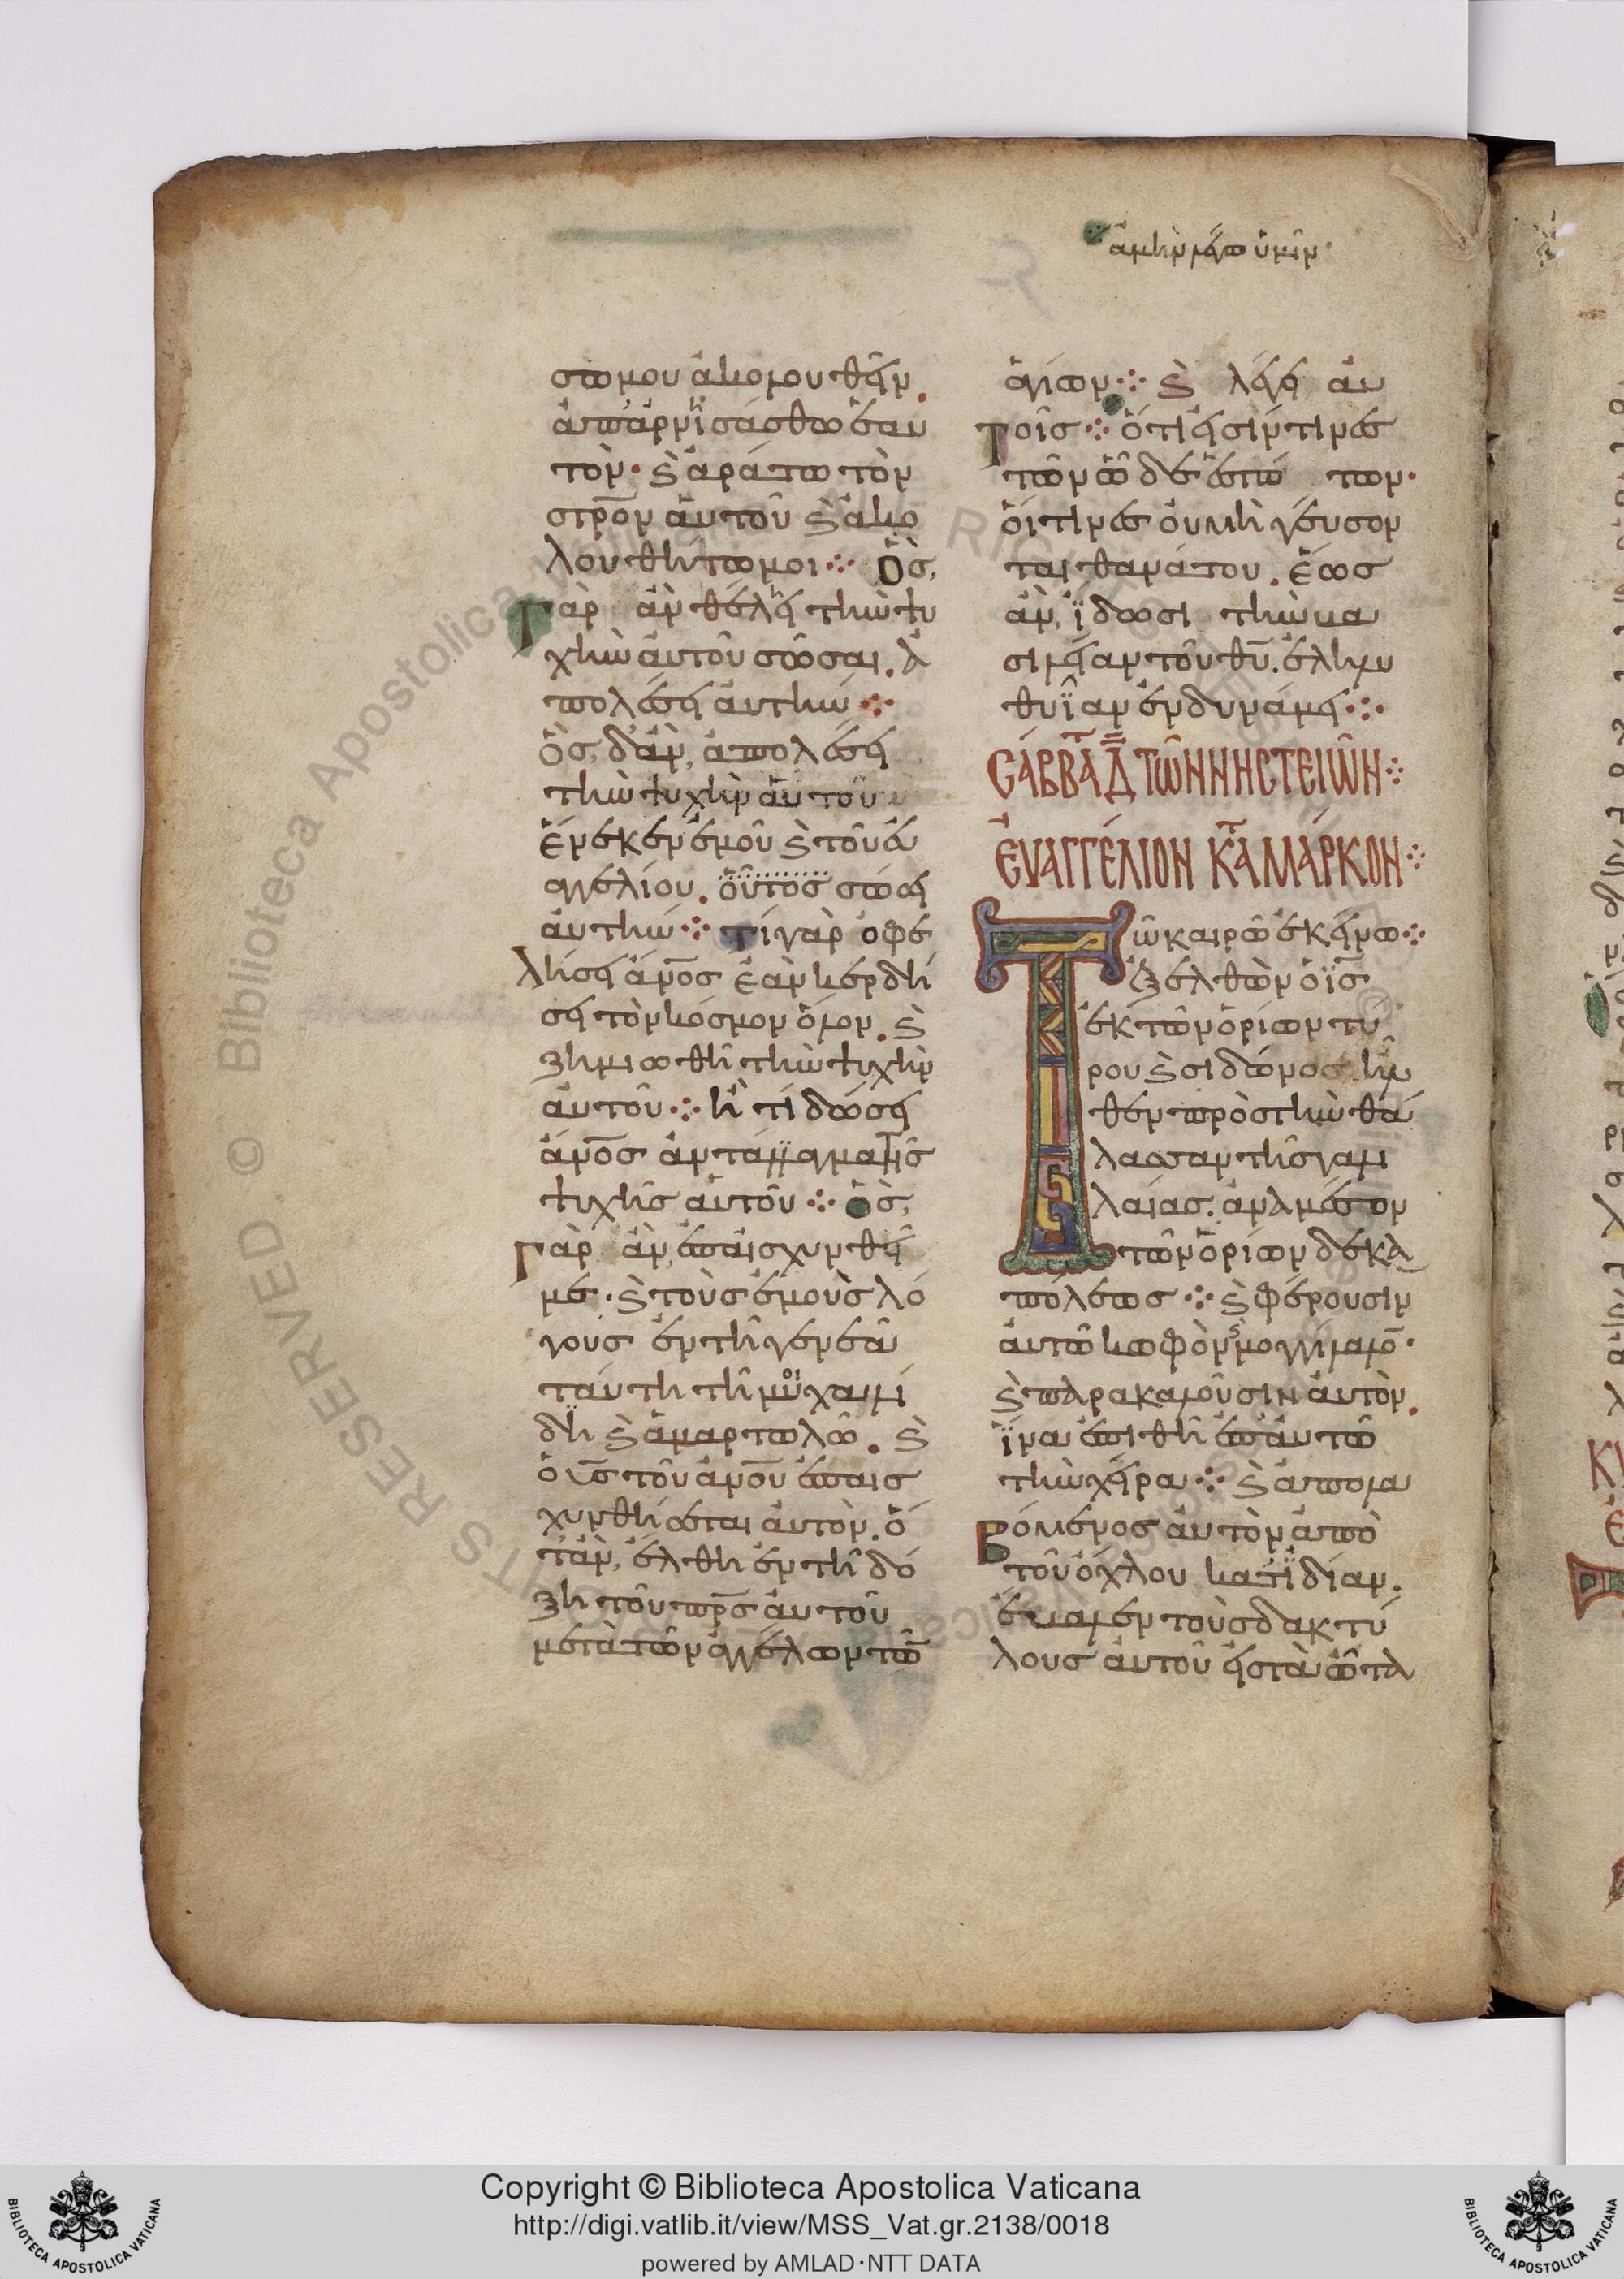 ἀμὴν λέγω ὑμῖν·
σω μου ἀκολουθεῖν.
ἀπαρνισάσθω ἑαυ
τὸν· ϗ ἀράτω τὸν
στρ̅ον αὐτοῦ ϗ ἀκο
λουθήτω μοι ⁘ Ὃς
γὰρ ἂν θέλει τὴν ψυ
χὴν αὐτοῦ σῶσαι. ἀ
πολέσει αὐτήν ⁘
Ὃς δ' ἂν ἀπολέσει
τὴν ψυχὴν αὐτοῦ
ἕνεκεν ἐμοῦ ϗ τοῦ εὐ
αγγελίου. οὗτος σώσει
αὐτήν ⁘ τί γὰρ ὀφε
λήσει ἄνο̅ς ἐὰν κερδή
σει τὸν κόσμον ὅλον. ϗ
ζημιωθῆ τὴν ψυχὴν
αὐτοῦ ⁘ ἢ τί δώσει
ἄνο̅ς ἀντάλλαγμα τῆς
ψυχῆς αὐτοῦ ⁘ Ὃς
γὰρ ἂν ἐπαισχυνθεῖ
με · ϗ τοὺς ἐμοὺς λό
γους ἐν τῆ γενεᾶ
ταύτη τῆ μοιχαλί
δη ϗ ἁμαρτωλῶ. ϗ
ὁ υ̅ς τοῦ ἀνο̅υ ἐπαισ
χυνθήσεται αὐτὸν. ὅ
ταν ἔλθη ἐν τῆ δό
ξη τοῦ πρ̅ς αὐτοῦ
μετὰ τῶν ἀγγέλων τῶ̅
ἁγίων ⁘ ϗ λέγει αὐ
τοῖς ⁘ ὅτι εἰσίν τινες
τῶν ὧδε ἑστώτων·
οἵτινες οὐ μὴ γεύσον
ται θανάτου. ἕως
ἂν ἴδωσι τὴν βα
σιλείαν τοῦ θυ̅. ἐληλυ
θυῖαν ἐν δυνάμει ⁘
ΣΑΒΒΑΤ Δ ΤΩΝ ΝΗΣΤΕΙΩΝ ⁘
ΕΥΑΓΓΕΛΙΟΝ ΚΑΤΑ ΜΑΡΚΟΝ ⁘
Τῶ καιρῶ ἐκείνω ⁘
ἐξελθὼν ὁ ις̅
ἐκ τῶν ὁρίων τύ
ρου ϗ σιδῶνος ἦλ
θεν πρὸς τὴν θά
λασσαν τῆς γαλι
λαίας. ἀνὰ μέσον
τῶν ὁρίων δεκα
πόλεως ⁘ ϗ φέρουσιν
αὐτῶ κωφὸν ϗ μογγιλάλο̅·
ϗ παρακαλοῦσιν αὐτὸν.
ἵνα ἐπιθῆ ἐπ' αὐτῶ
τὴν χεῖρα ⁘ ϗ ἀπολα
βόμενος αὐτὸν ἀπὸ
τοῦ ὄχλου κατ' ἰδίαν.
ἔβαλεν τοὺς δακτύ
λους αὐτοῦ εἰς τὰ ὦτα
Copyright © Biblioteca Apostolica Vaticana
http://digi.vatlib.it/view/MSS_Vat.gr.2138/0018
powered by AMLAD·NTT DATA
BIBLIOTECA APOSTOLICA VATICANA
BIBLIOTECA APOSTOLICA VATICANA